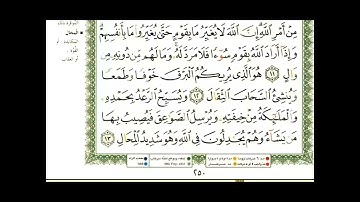 مِنْ أَمْرِ اللَّهِ إِنَّ اللَّهَ لَا يُغَيِّرُ مَا بِقَوْمٍ حَتَّىٰ يُغَيِّرُوا مَا بِأَنْفُسِهِمْ
وَإِذَا أَرَادَ اللَّهُ بِقَوْمٍ سُوءًا فَلَا مَرَدَّ لَهُ وَمَا لَهُمْ مِنْ دُونِهِ مِنْ
وَالٍ ١١ هُوَ الَّذِي يُرِيكُمُ الْبَرْقَ خَوْفًا وَطَمَعًا
وَيُنْشِئُ السَّحَابَ الثِّقَالَ ١٢ وَيُسَبِّحُ الرَّعْدُ بِحَمْدِهِ
وَالْمَلَائِكَةُ مِنْ خِيفَتِهِ وَيُرْسِلُ الصَّوَاعِقَ فَيُصِيبُ بِهَا
مَنْ يَشَاءُ وَهُمْ يُجَادِلُونَ فِي اللَّهِ وَهُوَ شَدِيدُ الْمِحَالِ ١٣
٢٥٠
المحال
القوة